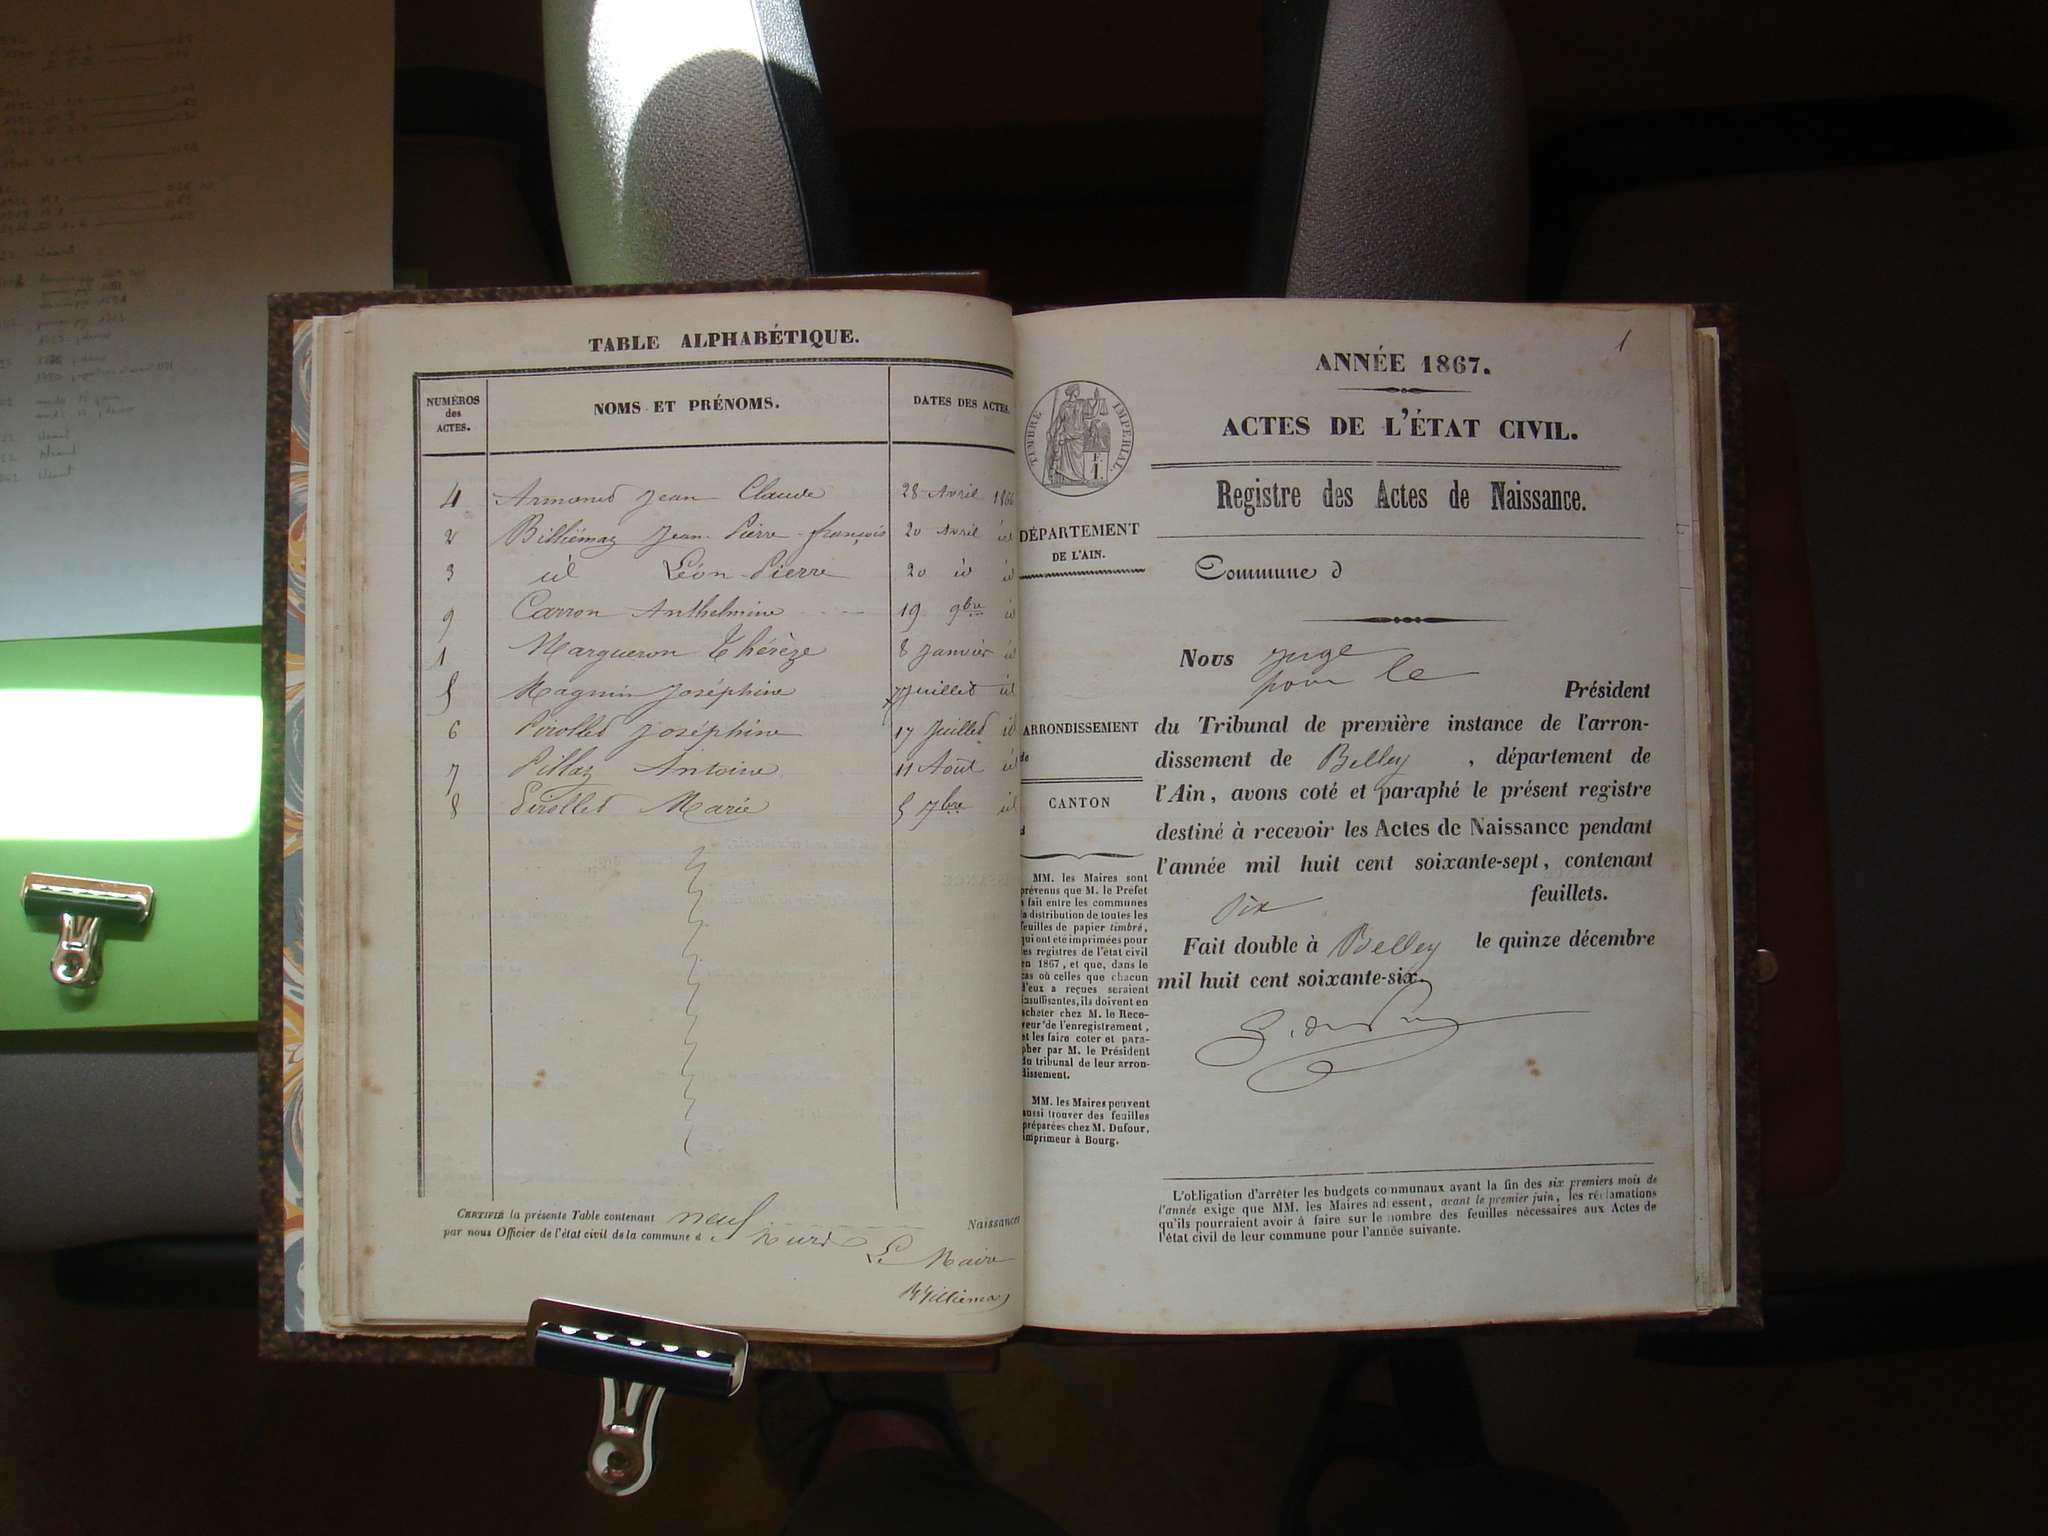 TABLE ALPHABÉTIQUE.
NUMÉROS des ACTES. NOMS ET PRÉNOMS. DATES DES ACTES.
4 Armand Jean Claude 28 Avril 1866
2 Billiémaz Jean Pierre françois 20 Avril id
3 id Léon Pierre 20 id id
9 Carron Anthelmine 19 9bre id
1 Margueron Thérèze 8 Janvier id
5 Magnin Joséphine 7 Juillet id
6 Pirollet Joséphine 17 Juillet id
7 Pillaz Antoine 11 Août id
8 Pirollet Marie 5 7bre id
CERTIFIÉ la présente Table contenant neuf Naissances
par nous Officier de l'état civil de la commune d
Le Maire
Billiemaz
1
ANNÉE 1867.
ACTES DE L'ÉTAT CIVIL.
TIMBRE IMPÉRIAL.
Registre des Actes de Naissance.
DÉPARTEMENT
DE L'AIN.
Commune d
ARRONDISSEMENT
de
CANTON
d
MM. les Maires sont
prévenus que M. le Préfet
a fait entre les communes
la distribution de toutes les
feuilles de papier timbré,
qui ont été imprimées pour
les registres de l'état civil
en 1867, et que, dans le
cas où celles que chacun
d'eux a reçues seraient
insuffisantes, ils doivent en
acheter chez M. le Rece-
veur de l'enregistrement,
et les faire coter et para-
pher par M. le Président
du tribunal de leur arron-
dissement.
MM. les Maires peuvent
aussi trouver des feuilles
préparées chez M. Dufour,
imprimeur à Bourg.
Nous juge
pour le
Président
du Tribunal de première instance de l'arron-
dissement de Belley, département de
l'Ain, avons coté et paraphé le présent registre
destiné à recevoir les Actes de Naissance pendant
l'année mil huit cent soixante-sept, contenant
six feuillets.
Fait double à Belley le quinze décembre
mil huit cent soixante-six
L'obligation d'arrêter les budgets communaux avant la fin des six premiers mois de
l'année exige que MM. les Maires adressent, avant le premier juin, les réclamations
qu'ils pourraient avoir à faire sur le nombre des feuilles nécessaires aux Actes de
l'état civil de leur commune pour l'année suivante.